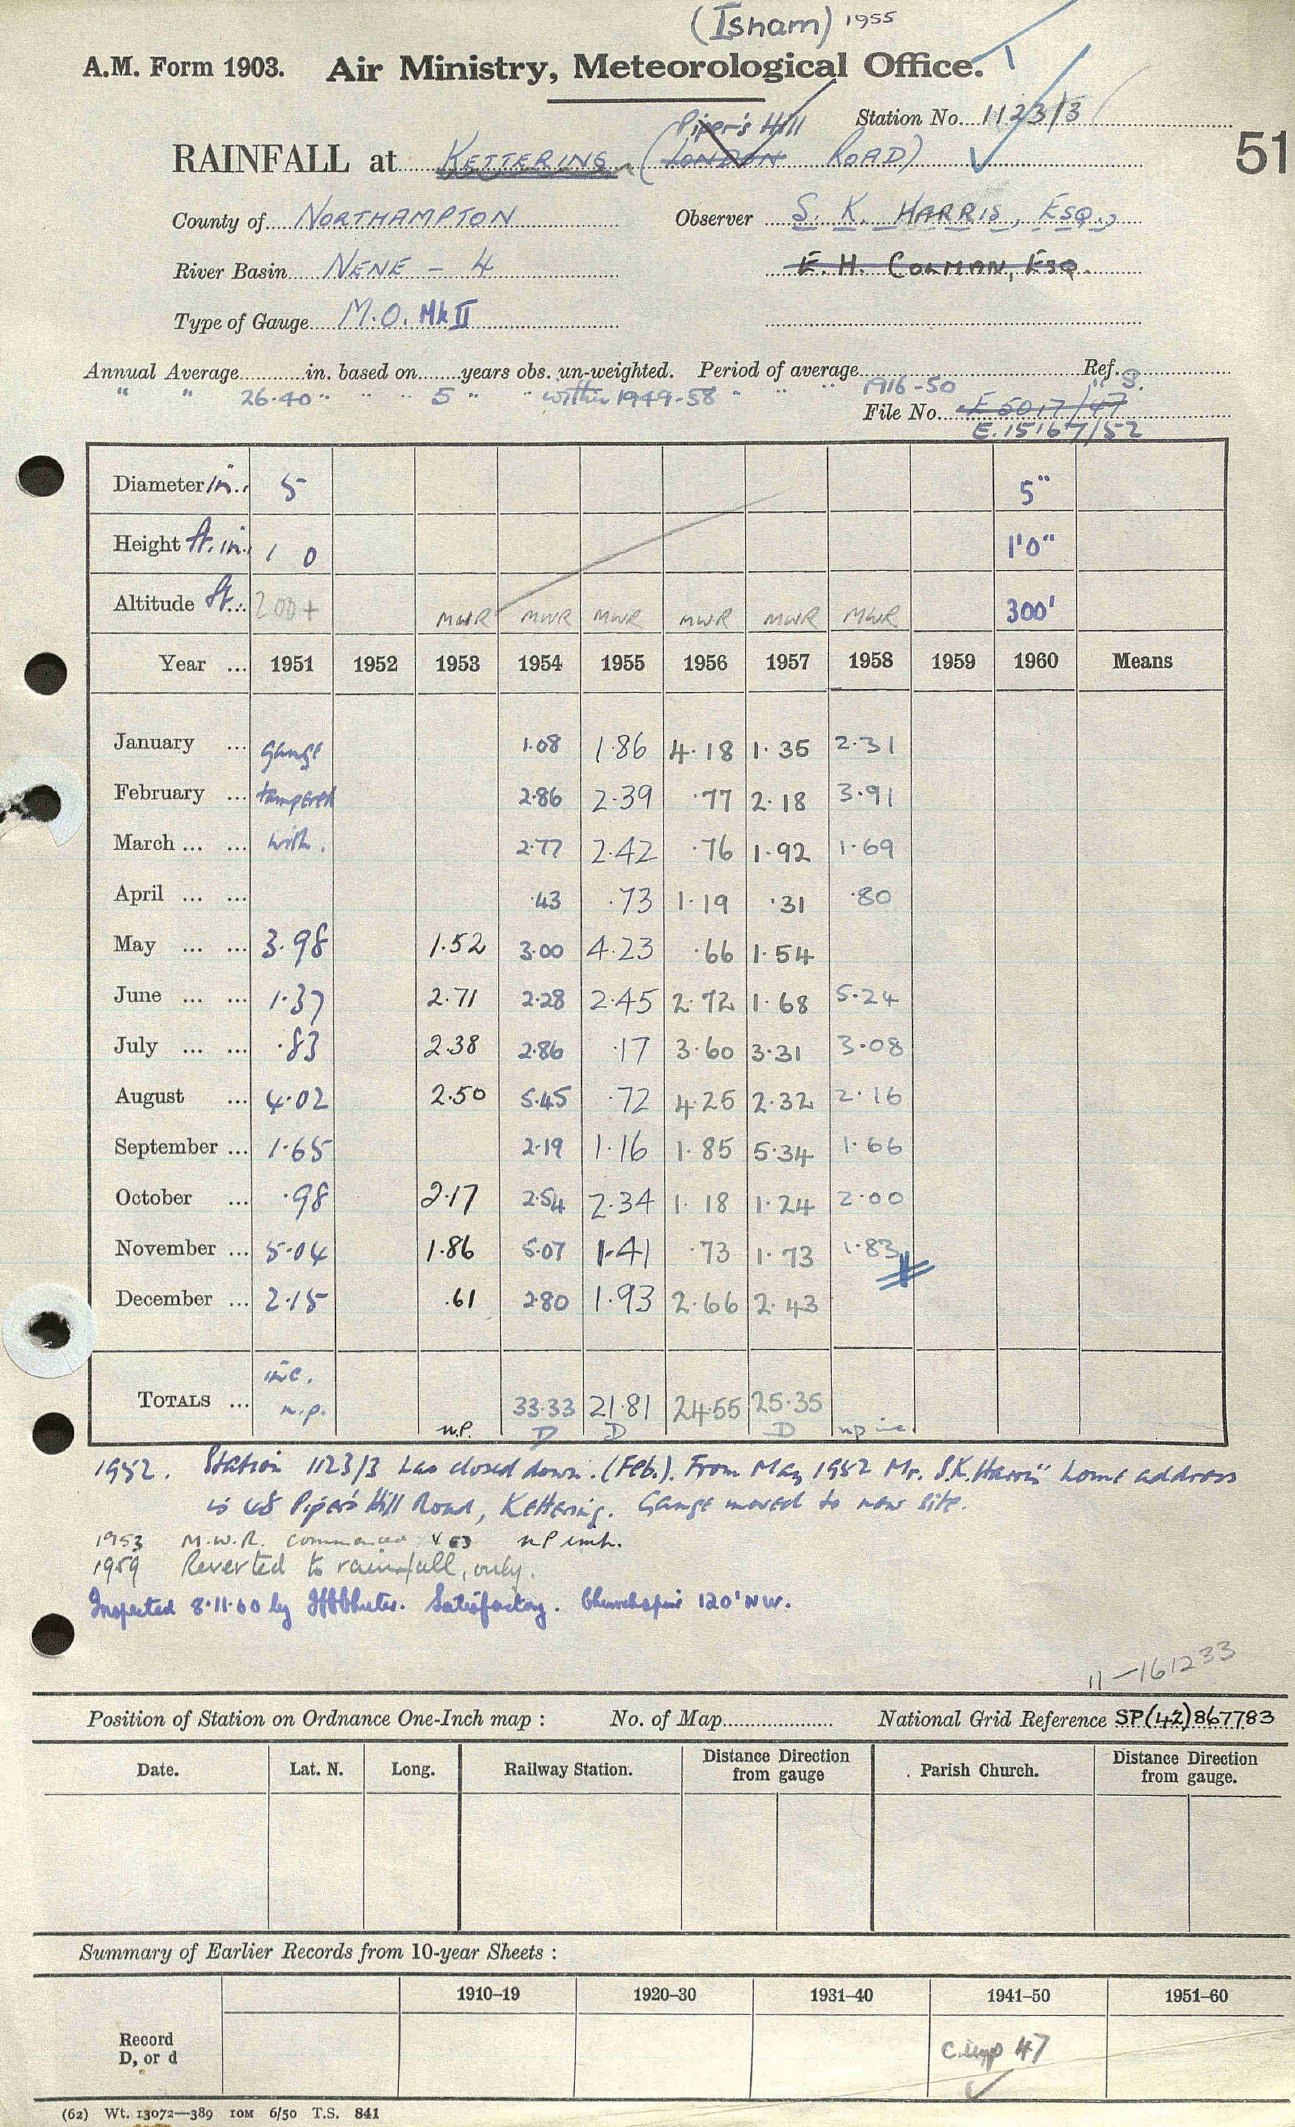 (Isham) 1955
A.M. Form 1903. Air Ministry, Meteorological Office. 1
Station No. 1123/3
Piper's Hill
RAINFALL at KETTERING (LONDON ROAD)
51
County of NORTHAMPTON Observer S. K. HARRIS, ESQ.,
River Basin NENE - 4 E. H. COLMAN, ESQ.
Type of Gauge M.O. Mk II
Annual Average in. based on years obs. un-weighted. Period of average Ref. S.
" " 26.40 " " " 5 " " within 1949-58 " " " 1916-50 "
File No. E 5017/47
E.15167/52
Diameter in. 5 5"
Height ft. in. 1 0 1'0"
Altitude ft. 200+ MWR MWR MWR MWR MWR MWR 300'
Year ... 1951 1952 1953 1954 1955 1956 1957 1958 1959 1960 Means
January ... gauge 1.08 1.86 4.18 1.35 2.31
February ... tampered 2.86 2.39 .77 2.18 3.91
March ... ... with. 2.77 2.42 .76 1.92 1.69
April ... ... .43 .73 1.19 .31 .80
May ... ... 3.98 1.52 3.00 4.23 .66 1.54
June ... ... 1.37 2.71 2.28 2.45 2.72 1.68 5.24
July ... ... .83 2.38 2.86 .17 3.60 3.31 3.08
August ... 4.02 2.50 5.45 .72 4.25 2.32 2.16
September ... 1.65 2.19 1.16 1.85 5.34 1.66
October ... .98 2.17 2.54 2.34 1.18 1.24 2.00
November ... 5.04 1.86 5.07 1.41 .73 1.73 1.83
December ... 2.15 .61 2.80 1.93 2.66 2.43
TOTALS ... inc. n.p. n.p. 33.33 D 21.81 D 24.55 25.35 D np inc.
1952. Station 1123/3 has closed down. (Feb.). From May 1952 Mr. S.K. Harris' home address
is 68 Piper's Hill Road, Kettering. Gauge moved to new site.
1953 M.W.R. commenced V 53 n P
1959 Reverted to rainfall, only.
Inspected 8.11.60 by Satisfactory. 120' NW.
11-161233
Position of Station on Ordnance One-Inch map : No. of Map National Grid Reference SP(42)867783
Date. Lat. N. Long. Railway Station. Distance Direction from gauge Parish Church. Distance Direction from gauge.
Summary of Earlier Records from 10-year Sheets :
1910–19 1920–30 1931–40 1941–50 1951–60
Record
D, or d
47
(62) Wt. 13072—389 10M 6/50 T.S. 841